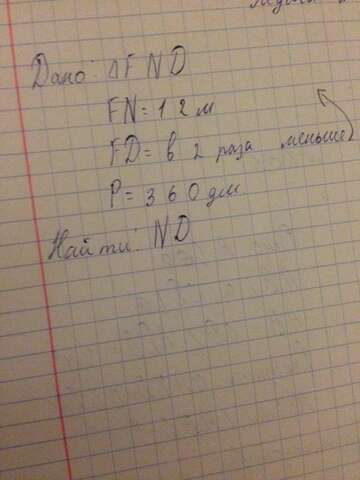 Дано: ΔFND
FN=12м
FD=в 2 раза меньше
P=360дм
Найти: ND